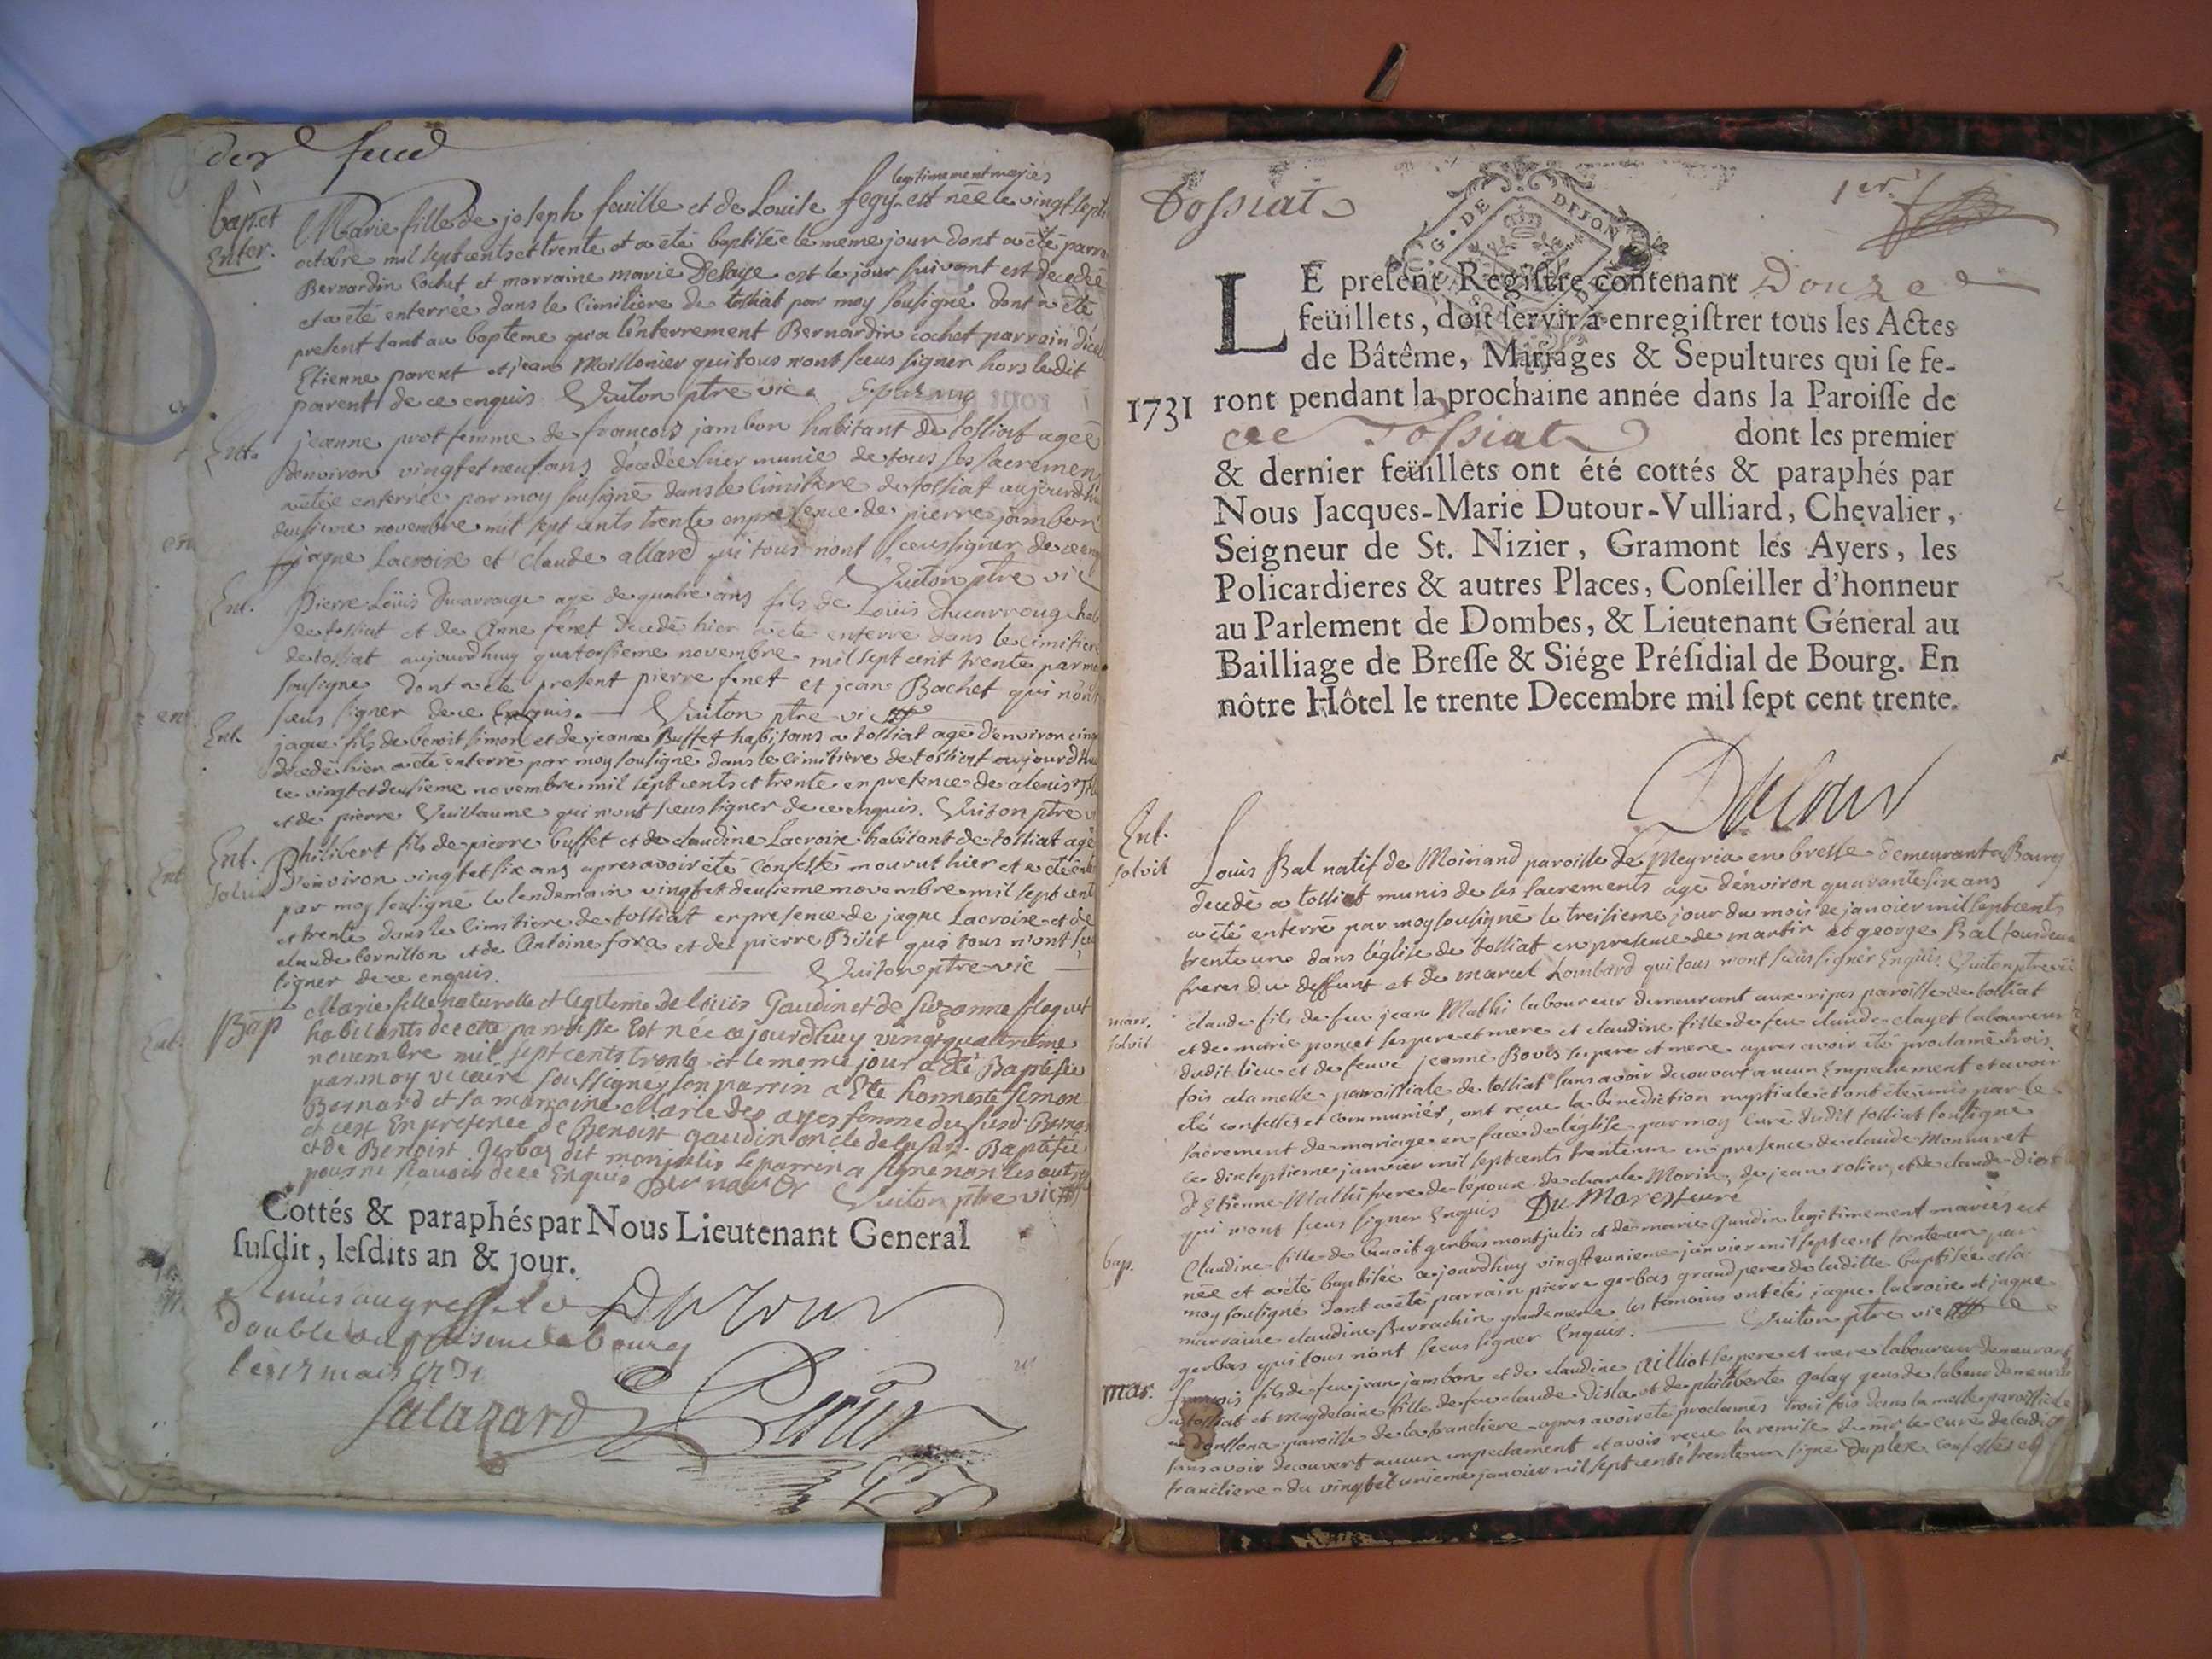 der feuil
bap. et
Enter.
legitimement mariés
Marie fille de joseph feuille et de Louise fegy est née le vingt sept
octobre mil sept cents et trente et a été baptisée le meme jour dont a été parra
Bernardin Cochet et marraine marie Delaye et le jour suivant est decedée
et a été enterrée dans le Cimitiere de tossiat par moy sousigné dont a été
present tant au bapteme qu'a l'enterrement Bernardin cochet parrain d'icel
Etienne parent et jean Moissonier qui tous n'ont sceus signer hors ledit
parent de ce enquis Vuiton ptre vic.
Ent.
jeanne prot femme de françois jambon habitant de tossiat agée
d'environ vingt et neuf ans décedée hier munie de tous ses sacremen
a été enterrée par moy sousigné dans le cimitiere de tossiat aujourd'hu
deusieme novembre mil sept cents trente en presence de pierre jambon
jaque Lacroix et Claude allard qui tous n'ont sceu signer de ce enq
Vuiton ptre vic
Ent.
Pierre Loüis Ducarrouge agé de quatre ans fils de Loüis ducarrouge hab
de tossiat et de Anne fenet decedé hier a été enterré dans le cimitiere
de tossiat aujourdhuy quatorsieme novembre mil sept cent trente par mo
sousigne dont a été present pierre fenet et jean Bachet qui n'ont
sceus signer de ce Enquis. Vuiton ptre vic
Ent.
jaque fils de benoit simon et de jeanne Buffet habitans a tossiat agé d'environ cinq
decedé hier a été enterré par moy sousigné dans le cimitiere de tossiat aujourd'hu
le vingt et deusieme novembre mil sept cents et trente en presence de alexis
et de pierre Vuillaume qui n'ont sceus signer de ce enquis. Vuiton ptre v
Ent.
solvit
Philibert fils de pierre buffet et de claudine Lacroix habitant de tossiat agé
d'environ vingt et six ans apres avoir été Confessé mourut hier et a été ent
par moy sousigné le lendemain vingt et deusieme novembre mil sept cent
et trente dans le cimitiere de tossiat en presence de jaque Lacroix et de
claude cornillon et de Antoine fora et de pierre Bisit qui tous n'ont sce
signer de ce enquis. Vuiton ptre vic
Bap
Marie fille naturelle et legitime de loüis Gaudin et de Suzanne floquet
habitants de cette parroisse Est née ce jourdhuy vingt quatrieme
novembre mil sept cents trente et le meme jour a été Baptisée
par moy vicaire soussigner son parrin a Ete honneste simon
Bernard et sa marraine Marie des ayes femme du susd. Berna
et cest En presence de Benoist gaudin oncle de la susd. Baptisée
et de Benoist gerbas dit monjulis le parrin a signé non les autres
pour ne scavoir de ce Enquis Bernard Vuiton ptre vic
Cottés & paraphés par Nous Lieutenant General
susdit, lesdits an & jour.
Remis au greffe le
double au presidial de bourg
le 17 mars 1731
Dutour
Salazard
Tossiat
1er.
G. DE DIJON
LE present Registre contenant Douze
feüillets, doit servir à enregistrer tous les Actes
de Bâtême, Mariages & Sepultures qui se fe-
1731 ront pendant la prochaine année dans la Paroisse de
de Tossiat dont les premier
& dernier feüillets ont été cottés & paraphés par
Nous Jacques-Marie Dutour-Vulliard, Chevalier,
Seigneur de St. Nizier, Gramont les Ayers, les
Policardieres & autres Places, Conseiller d'honneur
au Parlement de Dombes, & Lieutenant Géneral au
Bailliage de Bresse & Siége Présidial de Bourg. En
nôtre Hôtel le trente Decembre mil sept cent trente.
Dutour
Ent.
solvit
Louis Bal natif de Moinand paroisse de Meyria en bresse demeurant a Bourg
decedé a tossiat munis de ses sacrements agé d'environ quarante six ans
a été enterré par moy sousigné le treisieme jour du mois de janvier mil sept cents
trente un dans l'église de tossiat en presence de martin et george Bal tous deux
freres du deffunt et de marcel Lombard qui tous n'ont sceus signer Enquis. Vuiton ptre vic
mar.
solvit
claude fils de feu jean Mathi laboureur demeurant aux ripes paroisse de tossiat
et de marie poncet ses pere et mere et claudine fille de feu claude clayet laboureur
dudit lieu et de feuve jeanne Bovis ses pere et mere apres avoir été proclamé trois
fois a la messe paroissiale de tossiat sans avoir decouvert aucun Empechement et avoir
été confessés et communiés, ont reçu la benediction nuptiale et ont été unis par le
sacrement de mariage en face de l'église par moy Curé dudit tossiat sousigné
le dixseptieme janvier mil sept cents trente un en presence de claude Monnaret
d'Etienne Mathi frere de l'époux de charle Morin, de jean rolier, et de claude diot
qui n'ont sceus signer Enquis Du Marest curé
bap.
Claudine fille de benoit gerbas montjulis et de marie Gaudin legitimement mariés est
née et a été baptisée ce jourdhuy vingt eunieme janvier mil sept cent trente un par
moy sousigné dont a été parrain pierre gerbas grand pere de laditte baptisée et la
marraine claudine Barrachin grande mere les temoins ont étés jaque lacroix et jaque
gerbas qui tous n'ont sceus signer Enquis. Vuiton ptre vic
mar.
françois fils de feu jean jambon et de claudine Ailliot ses pere et mere laboureur demeurant
a tossiat et magdelaine fille de feu claude disla et de philiberte galay gens de labeur demeurant
a donsona paroisse de la tranclière apres avoir été proclamés trois fois dans la messe paroissiale
sans avoir decouvert aucun impechement et avoir reçu la remise de mr le curé de ladite
tranclière du vingt et unieme janvier mil sept cents trente un signé Duplex confessés et